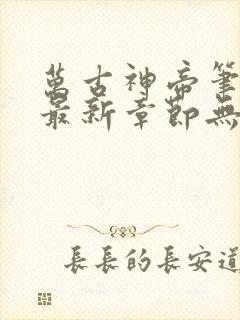 萬古神帝筆
最新章節無
長長的長安道